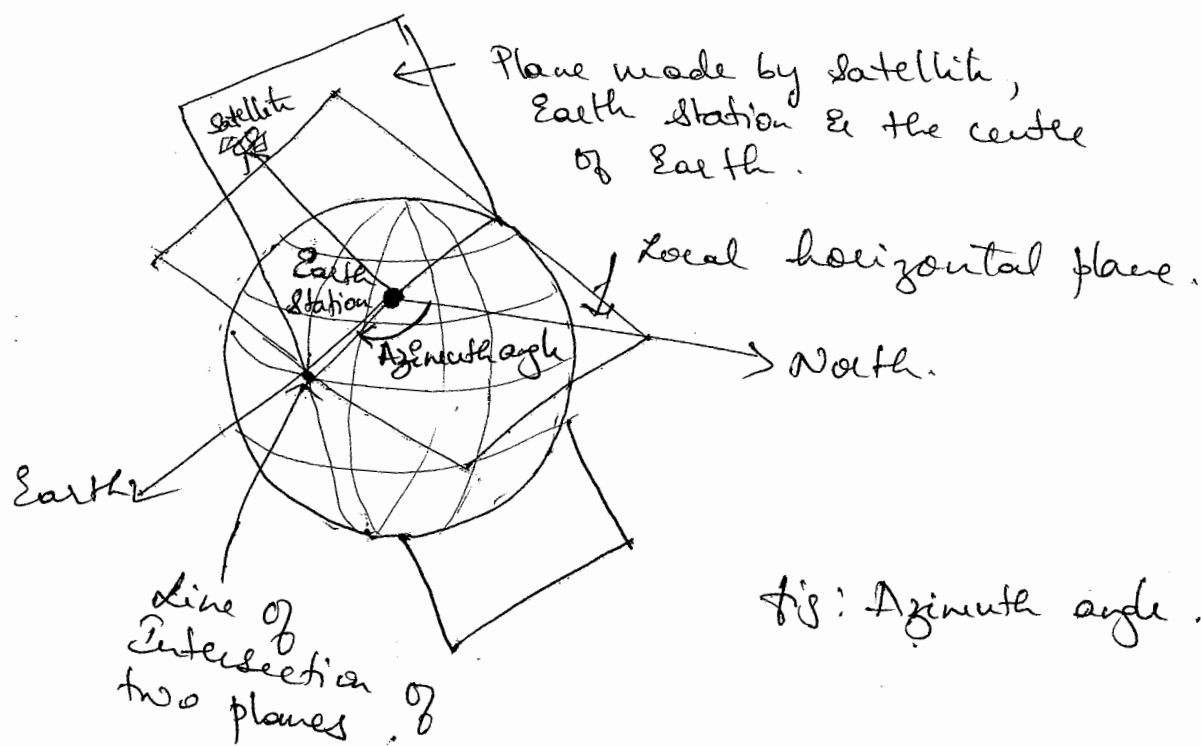 Plane made by Satellite,
Earth Station & the centre
of Earth.
Satellite
Local horizontal plane.
Earth
Station
Azimuth angle
North.
Earth
Line of
Intersection of
two planes of
fig: Azimuth angle.